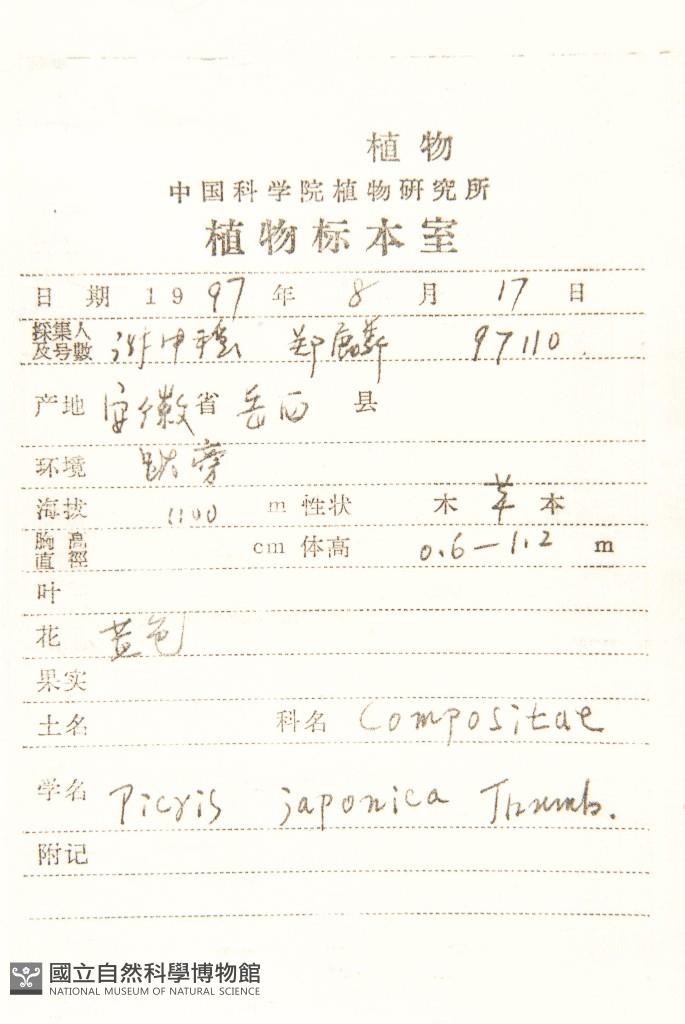 植物
中国科学院植物研究所
植物标本室
日 期 1997 年 8 月 17 日
採集人及号數 97110
产地 安徽省 岳西 县
环境 路旁
海拔 1100 m 性状 木 草 本
胸高直徑 cm 体高 0.6—1.2 m
叶
花 黄色
果实
土名 科名 Compositae
学名 Picris japonica Thunb.
附记
國立自然科學博物館
NATIONAL MUSEUM OF NATURAL SCIENCE